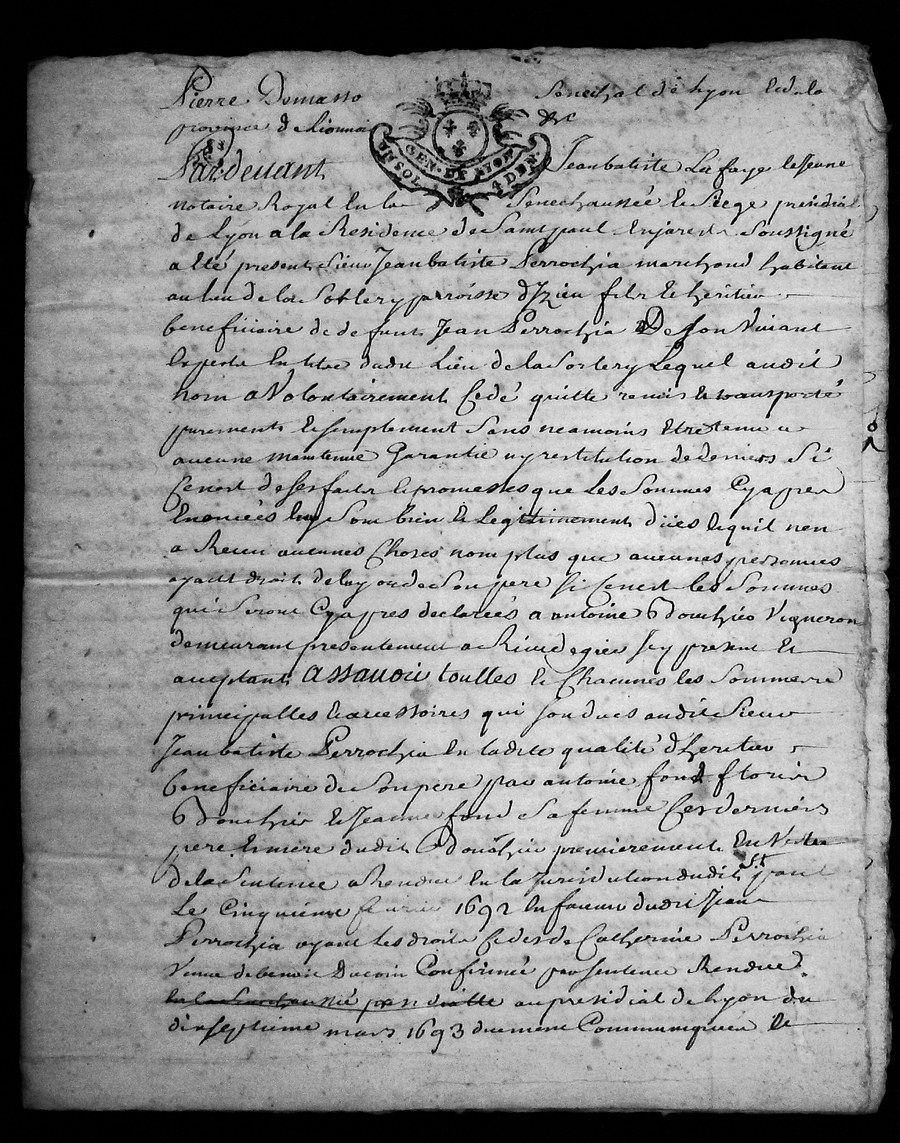 Pierre Demasso Senechal de Lyon et de la
province de Lionnois &c
GEN. DE LYON
UN SOL 4 DEN.
Pardevant Jean batiste La faye le Jeune
notaire Royal en la Senechaussée et Siege presidial
de Lyon a la Residence de Saint paul en jarest Soussigné
a été present Sieur Jean batiste Perrochia marchand habitant
au lieu de la Sottery parroisse d'Izieu fils et heritier
beneficiaire de defunt Jean Perrochia De son vivant
dudit Lieu de la Sottery Lequel audit
nom a Volontairement Cedé quitte remis et transporté
purement et simplement Sans neamoins être tenu a
aucune maintenue Garantie ny restitution de deniers Si
Ce n'est de ses faits et promesses que Les Sommes Cy apres
Enoncées luy Sont bien et Legitimement dües et quil n'en
a Receu aucunes Choses nom plus que aucunes personnes
ayant droit de luy ou de Son pere Si Ce n'est les Sommes
qui Seront Cy apres declarées a antoine Vigneron
demeurant presentement a Rivedegier Icy present et
acceptant Assavoir touttes et Chacunes les Sommes
principalles et accessoires qui sont dues audit Sieur
Jean batiste Perrochia en ladite qualité d'heretier
beneficiaire de Son pere par antoine fond
et Jeanne fond Sa femme Ces derniers
pere et mere dudit premierement En Vertu
de la Sentence Rendue en la Jurisdiction dudit St paul
Le Cinquieme fevrier 1692 en faveur dudit Jean
Perrochia ayant les droits Cedés de Catherine Perrochia
Veuve de benoit Ducoin Confirmée par sentence Rendue
en la Senechaussée presidialle au presidial de Lyon du
dixseptieme mars 1693 Communiquée le